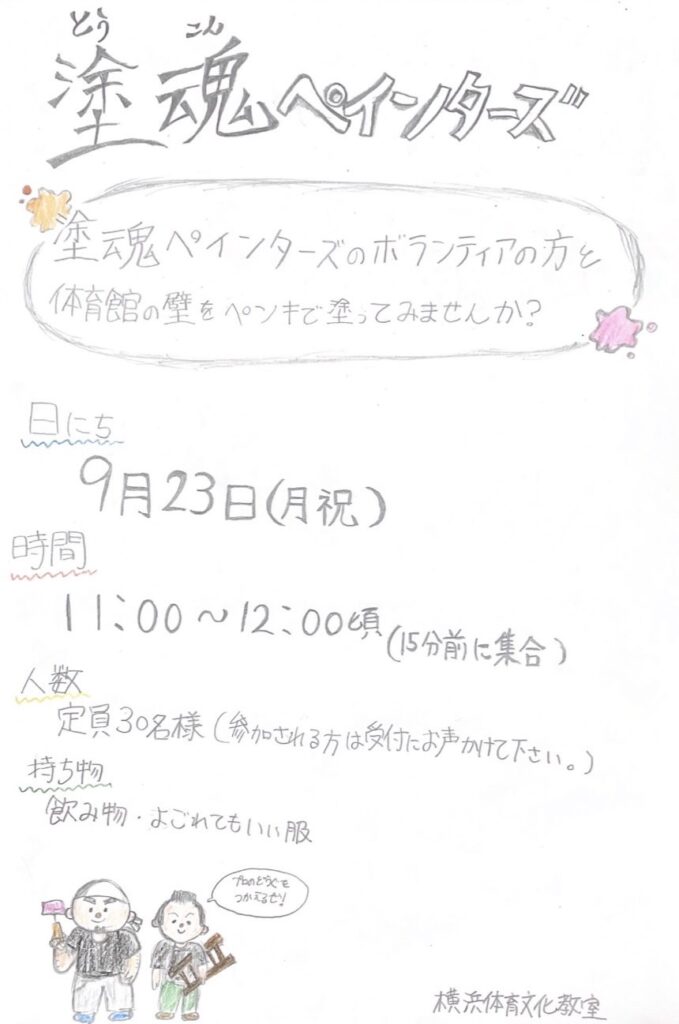 とう こん
塗魂ペインターズ
塗魂ペインターズのボランティアの方と
体育館の壁をペンキで塗ってみませんか?
日にち
9月23日(月祝)
時間
11:00〜12:00頃(15分前に集合)
人数
定員30名様(参加される方は受付にお声かけて下さい。)
持ち物
飲み物・よごれてもいい服
プロのどうぐを
つかえるぜ!
横浜体育文化教室